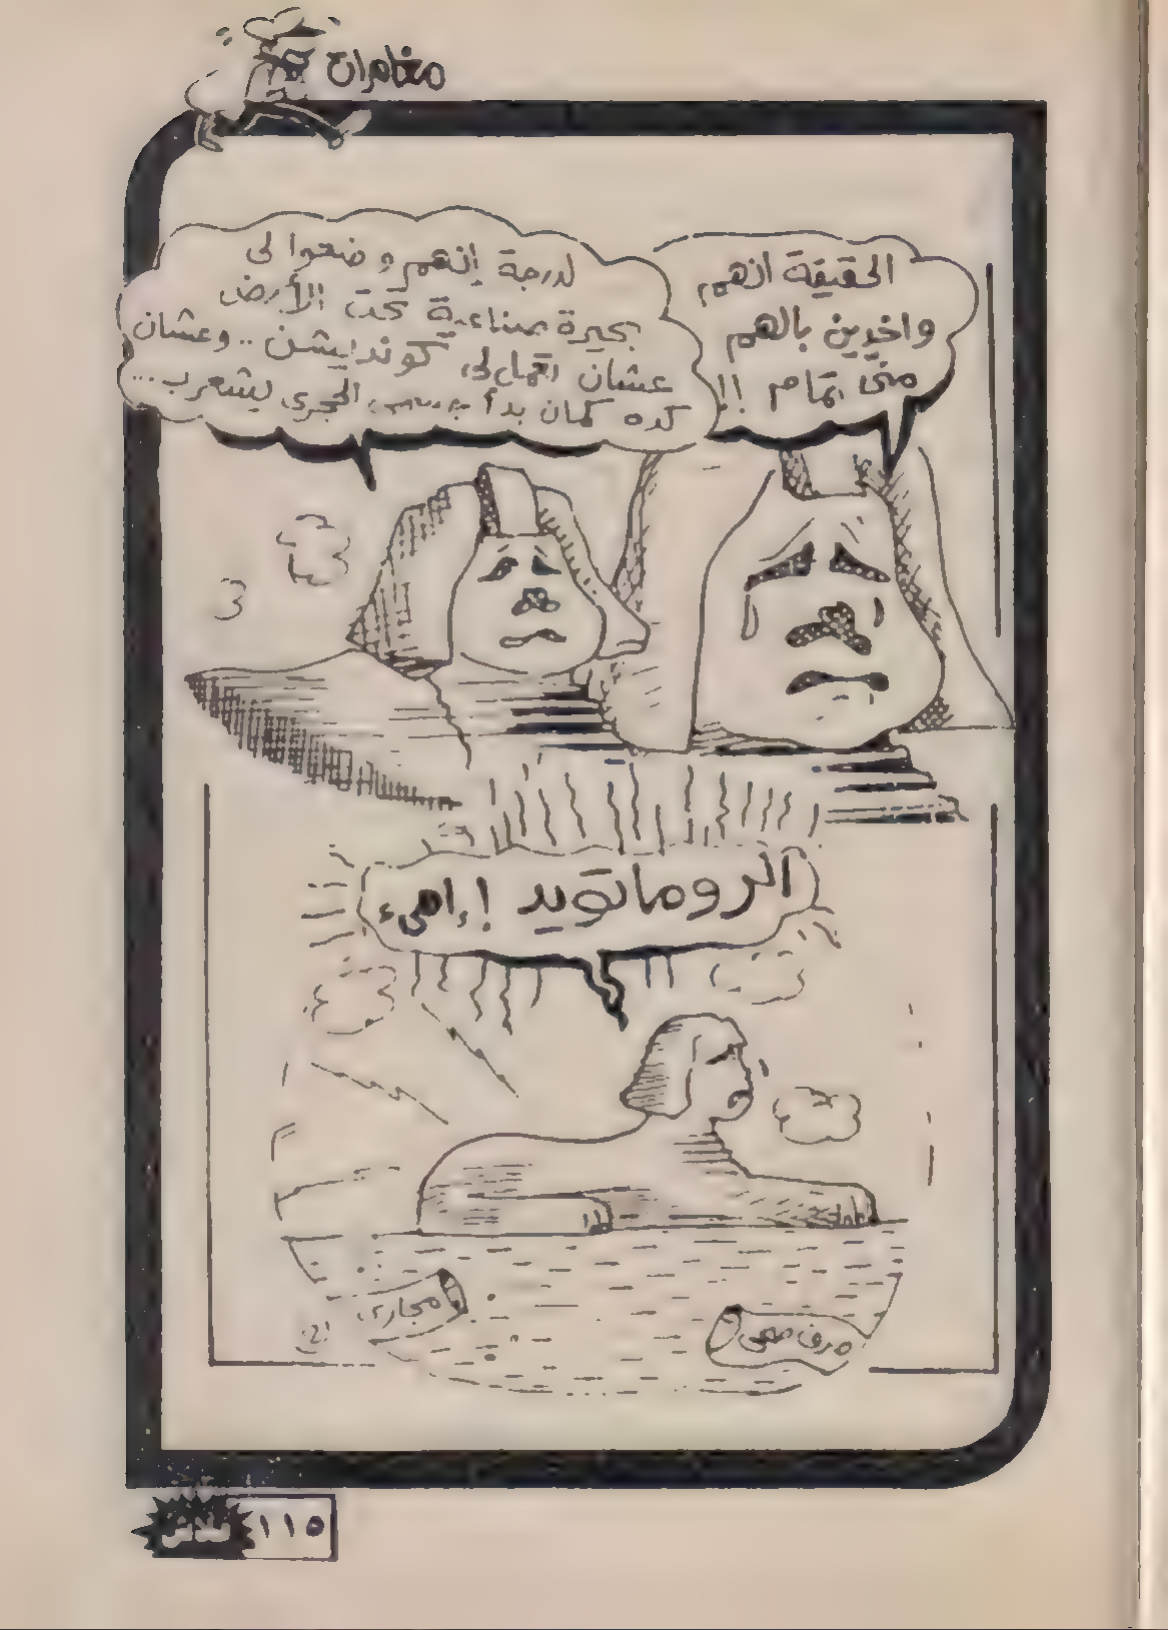 مغامرات
الحقيقة انهم
واخدين بالهم
منى تمام !!
لدرجة إنهم وضعوا لى
بحيرة صناعية تحت الأرض
عشان تعمل لى كونديشن .. وعشان
كده كمان بدأ الحجرى يشعرب ...
الروماتويد ! إهىء
مجارى
صرف صحى
١١٥
فلاش